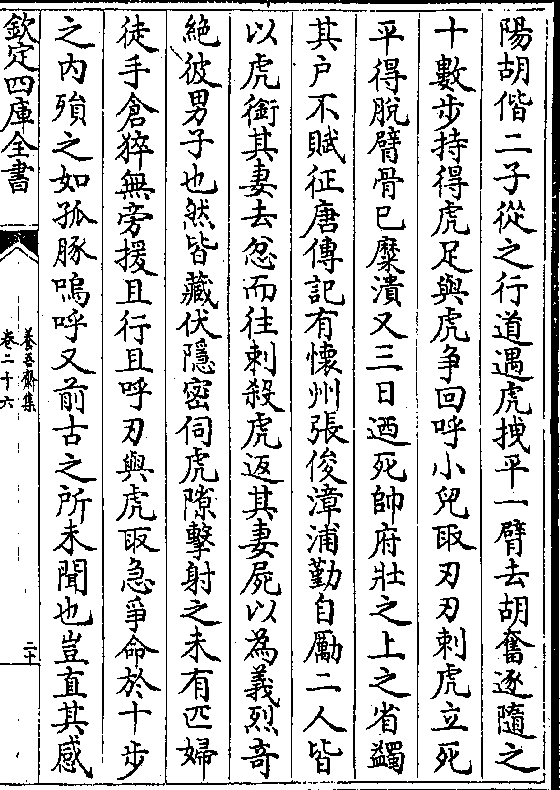 陽胡偕二子從之行道遇虎拽平一臂去胡奮逐隨之
十數步持得虎足與虎争回呼小兒取刃刃刺虎立死
平得脫臂骨已糜潰又三日迺死帥府壯之上之省蠲
其户不賦征唐傳記有懷州張俊漳浦勤自勵二人皆
以虎銜其妻去忿而往刺殺虎返其妻屍以為義烈竒
絶彼男子也然皆藏伏隱密伺虎隙擊射之未有匹婦
徒手倉猝無旁援且行且呼刃與虎取急爭命於十步
之内殞之如孤豚嗚呼又前古之所未聞也豈直其感
欽定四庫全書
養吾齋集
卷二十六
二十